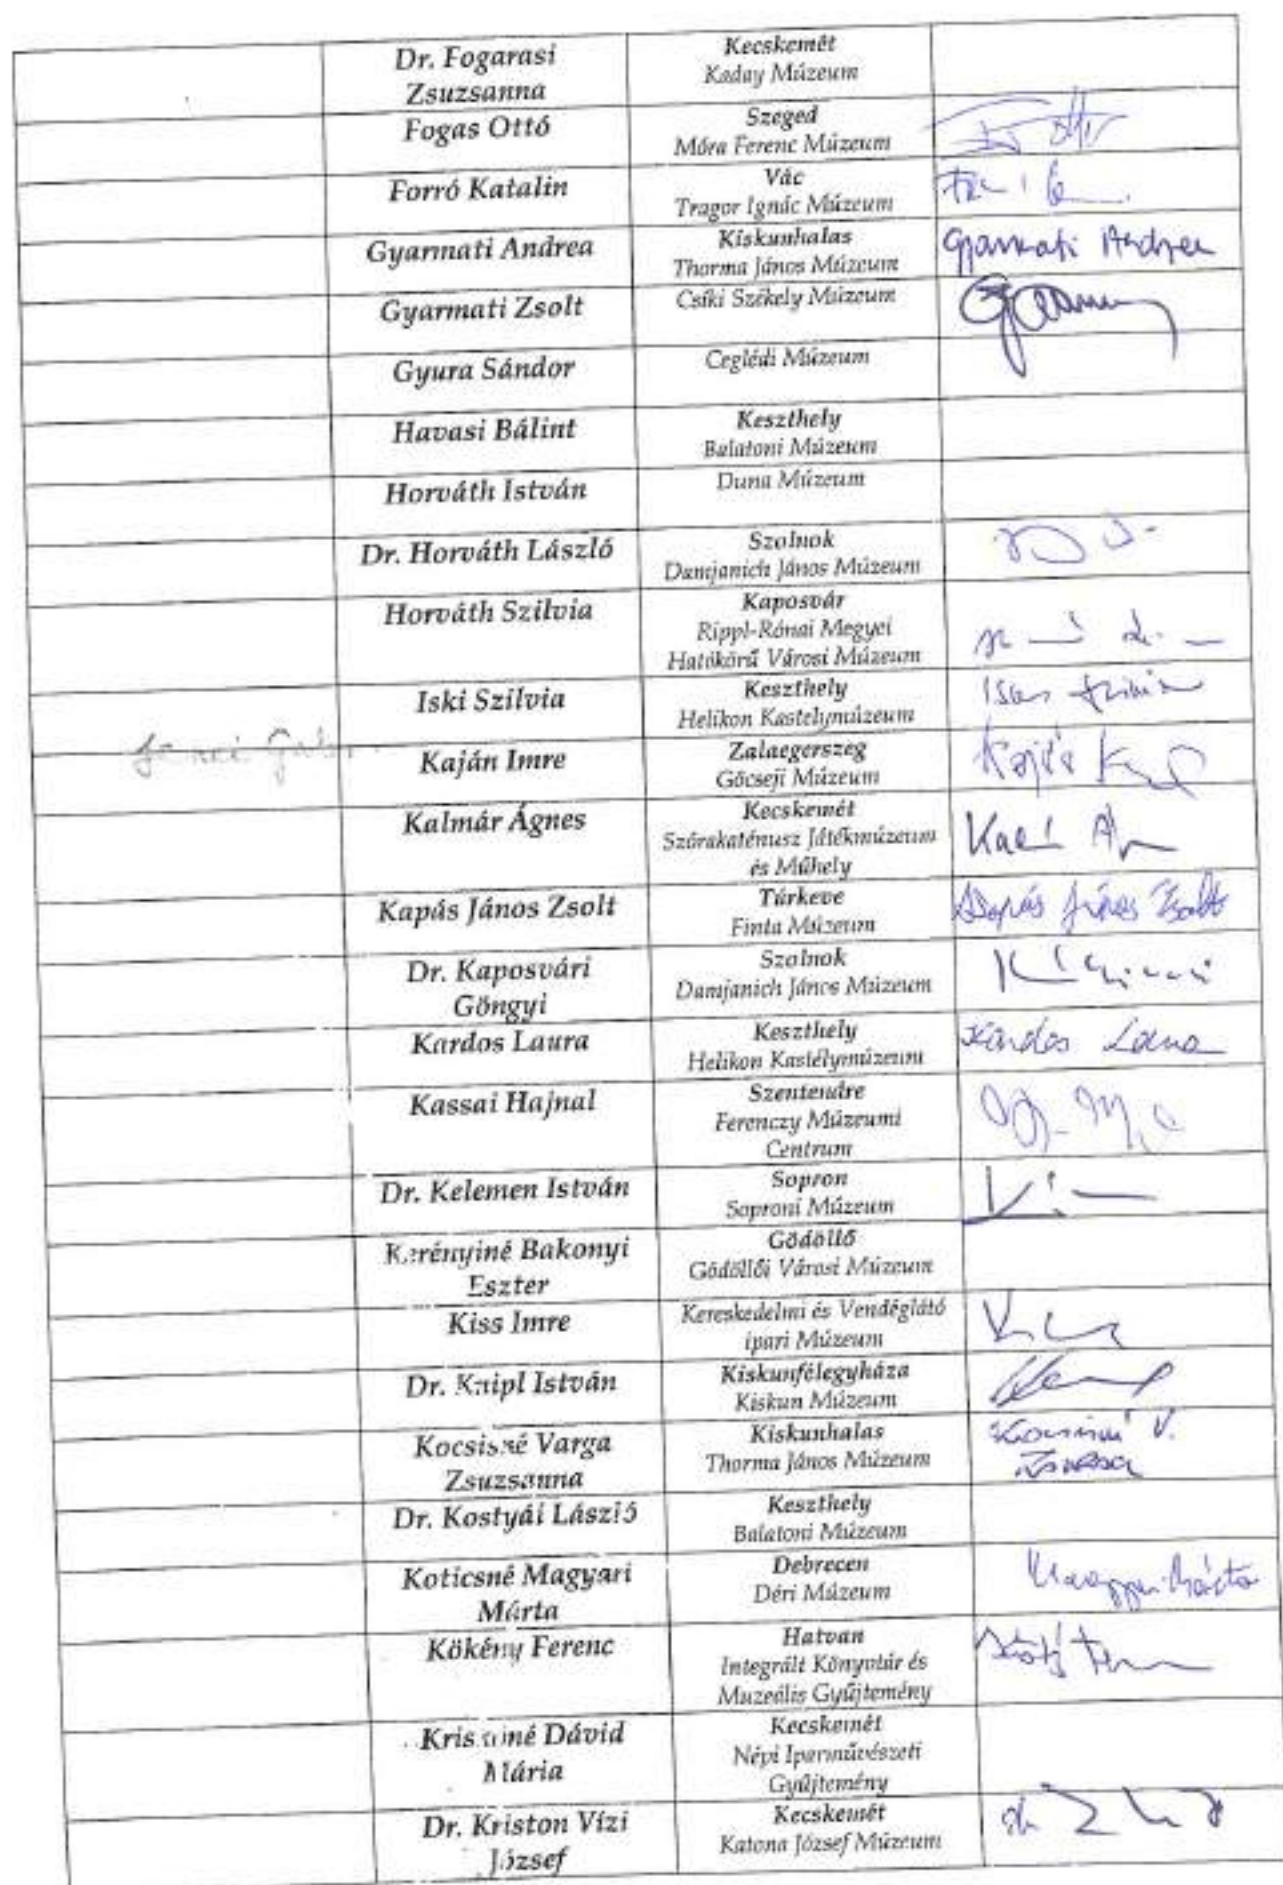 Dr. Fogarasi
Zsuzsanna
Kecskemét
Kaday Múzeum
Fogas Ottó
Szeged
Móra Ferenc Múzeum
Forró Katalin
Vác
Tragor Ignác Múzeum
Gyarmati Andrea
Kiskunhalas
Thorma János Múzeum
Gyarmati Andrea
Gyarmati Zsolt
Csíki Székely Múzeum
Gyura Sándor
Ceglédi Múzeum
Havasi Bálint
Keszthely
Balatoni Múzeum
Horváth István
Duna Múzeum
Dr. Horváth László
Szolnok
Damjanich János Múzeum
Horváth Szilvia
Kaposvár
Rippl-Rónai Megyei
Hatókörű Városi Múzeum
Iski Szilvia
Keszthely
Helikon Kastelymúzeum
Kaján Imre
Zalaegerszeg
Göcseji Múzeum
Kalmár Ágnes
Kecskemét
Szórakaténusz Játékmúzeum
és Műhely
Kapás János Zsolt
Túrkeve
Finta Múzeum
Kapás János Zsolt
Dr. Kaposvári
Göngyi
Szolnok
Damjanich János Múzeum
Kardos Laura
Keszthely
Helikon Kastélymúzeum
Kardos Laura
Kassai Hajnal
Szentendre
Ferenczy Múzeumi
Centrum
Dr. Kelemen István
Sopron
Soproni Múzeum
Kerényiné Bakonyi
Eszter
Gödöllő
Gödöllői Városi Múzeum
Kiss Imre
Kereskedelmi és Vendéglátó
ipari Múzeum
Dr. Knipl István
Kiskunfélegyháza
Kiskun Múzeum
Kocsisné Varga
Zsuzsanna
Kiskunhalas
Thorma János Múzeum
Kocsisné V.
Zsuzsa
Dr. Kostyál László
Keszthely
Balatoni Múzeum
Koticsné Magyari
Márta
Debrecen
Déri Múzeum
Magyari Márta
Kökény Ferenc
Hatvan
Integrált Könyvtár és
Muzeális Gyűjtemény
Dávid
Mária
Kecskemét
Népi Iparművészeti
Gyűjtemény
Dr. Kriston Vízi
József
Kecskemét
Katona József Múzeum